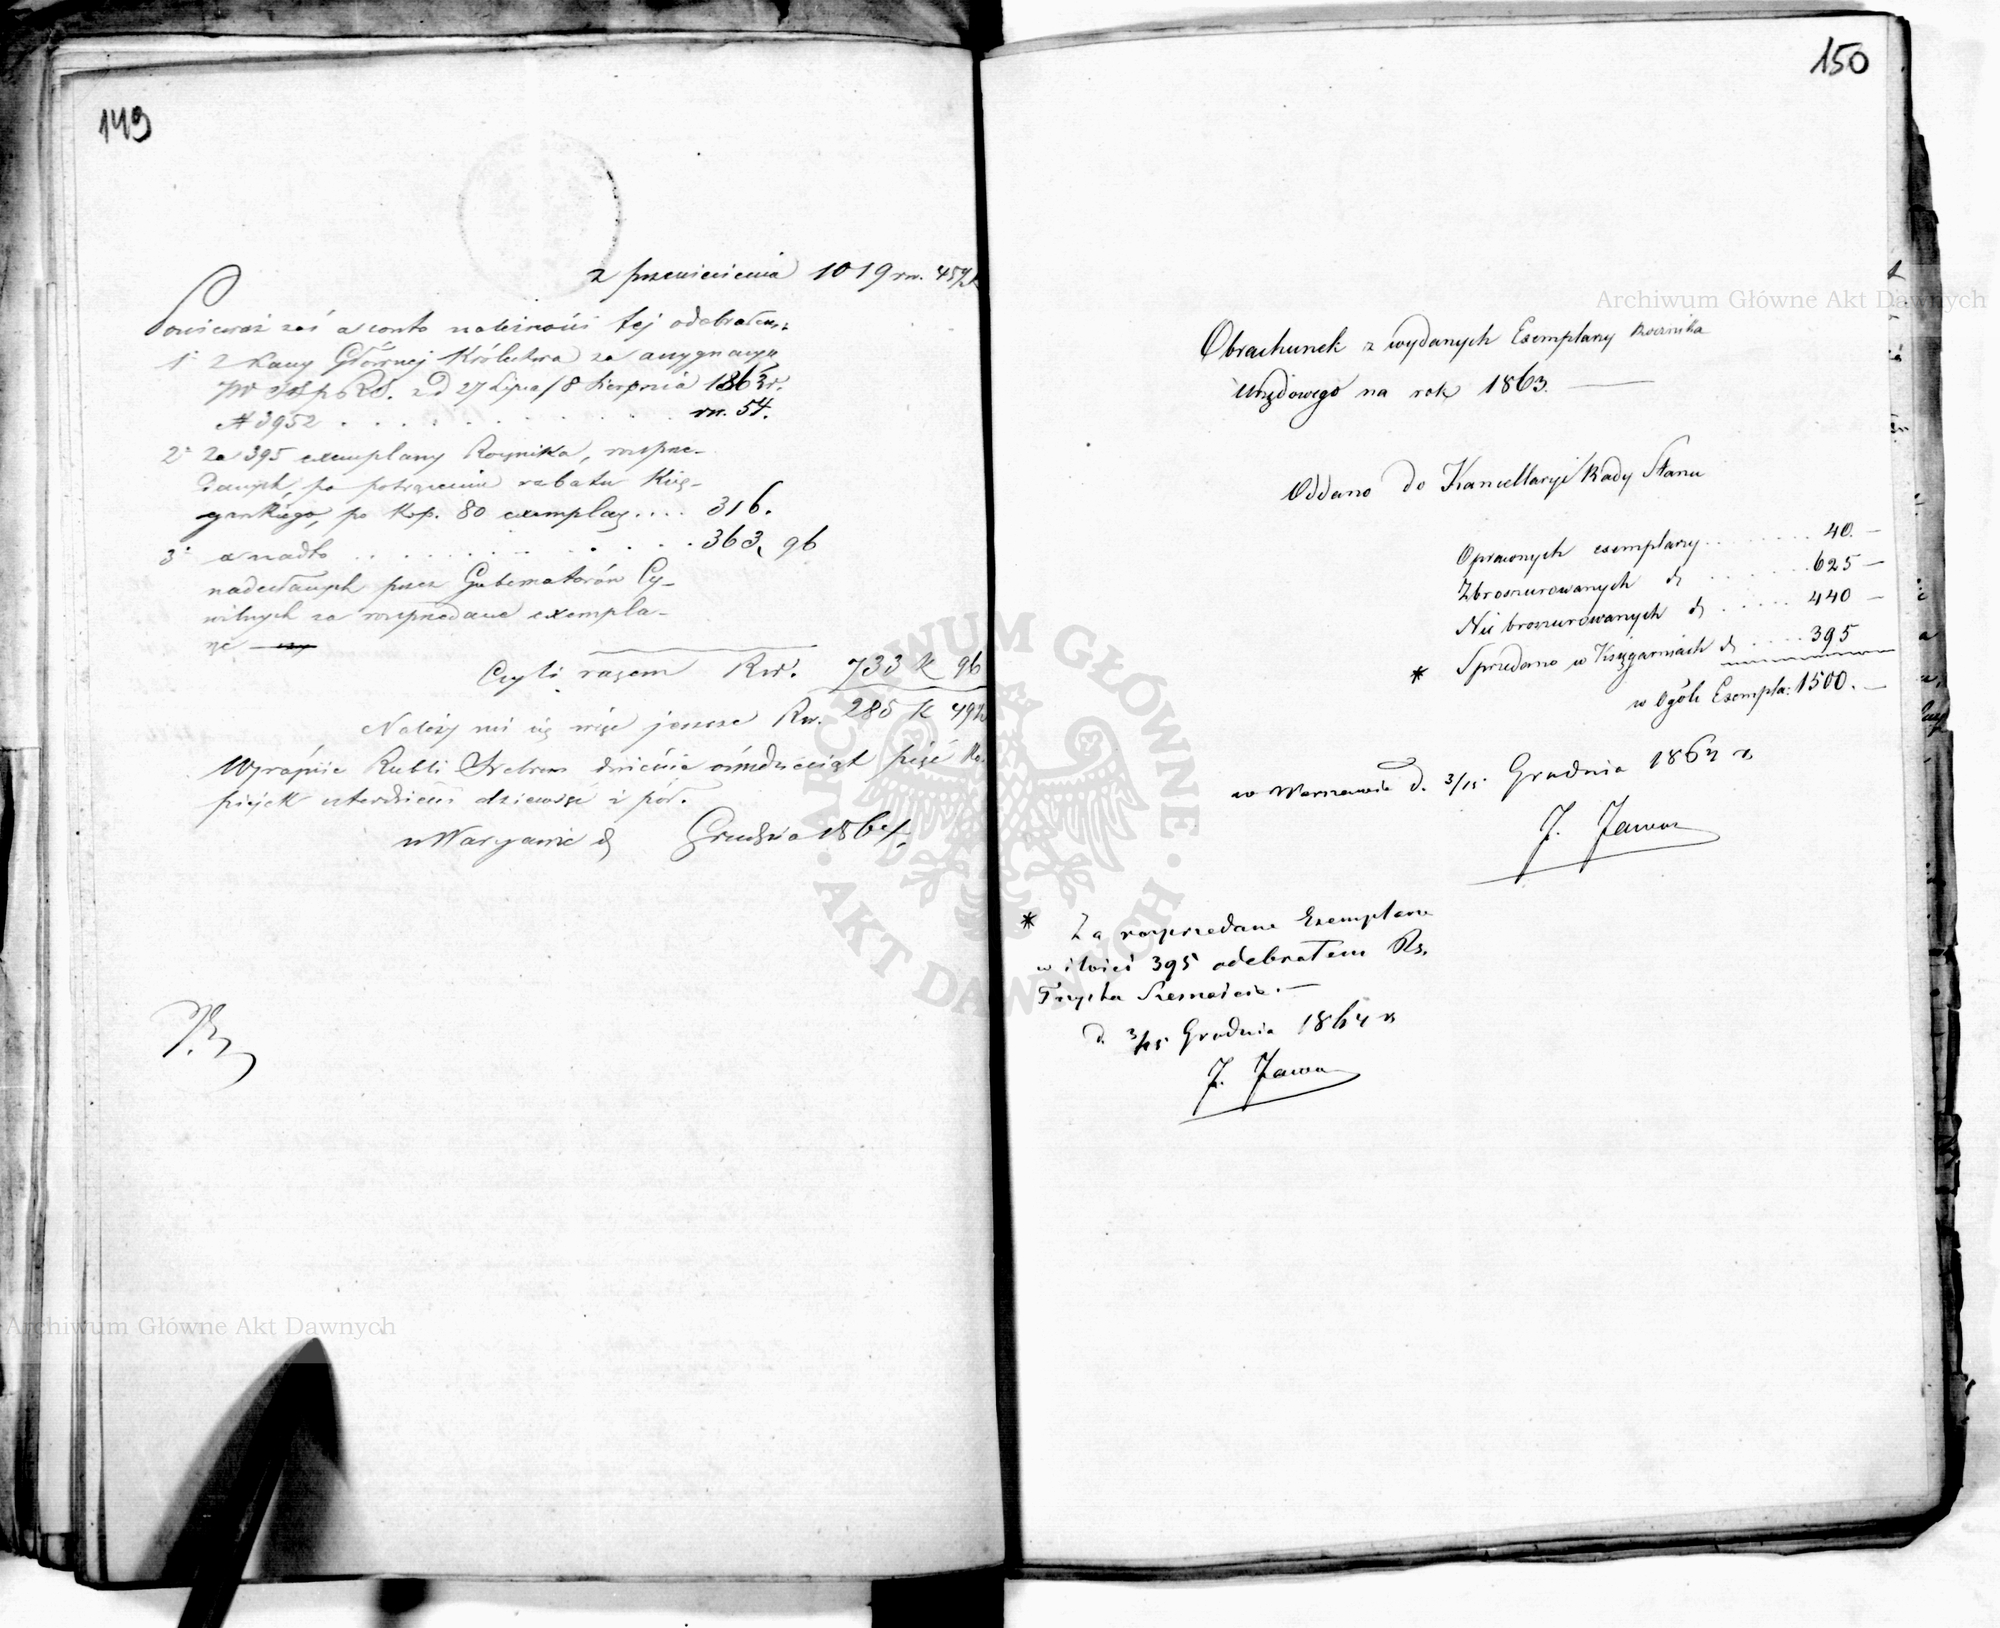 149
z przeniesienia 1019 rs. 45½ k
Ponieważ zaś a conto należności tej odebrałem:
1° z Kassy Głównej Królestwa za assygnacyą
od 27 Lipca/8 Sierpnia 1863 r.
№ 3952 . . . . . . . . . rs. 54.
2° Za 395 exemplarzy Rocznika, rozprze-
danych, po potrąceniu rabatu Księ-
garskiego, po kop. 80 exemplarz .... 316.
3° a nadto . . . . . . . . . . 363, 96
nadesłanych przez Gubernatorów Cy-
wilnych za rozprzedane exempla-
rze
Czyli razem Rs. 733 k 96
Należy mi się więc jeszcze Rs. 285 k 49½
Wyraźnie Rubli Srebrem dwieście ośmdziesiąt pięć Ko-
piejek czterdzieści dziewięć i pół.
w Warszawie d Grudnia 1864 r.
150
Obrachunek z wydanych Exemplarzy Rocznika
Urzędowego na rok 1863. —
Oddano do Kancellaryi Rady Stanu
Oprawnych exemplarzy . . . . . . . . 40. —
Zbroszurowanych d . . . . . . 625 —
Nie broszurowanych d . . . . . 440 —
* Sprzedano w Księgarniach d . . . . 395
w Ogóle Exempla: 1500. —
w Warszawie d. 3/15 Grudnia 1864 r.
J. Jawor
* Za rozprzedane Exemplarze
w ilości 395 odebrałem Rs.
Trzysta Szesnaście. —
d. 3/15 Grudnia 1864 r.
J. Jawor
Archiwum Główne Akt Dawnych
Archiwum Główne Akt Dawnych
ARCHIWUM GŁÓWNE · AKT DAWNYCH ·